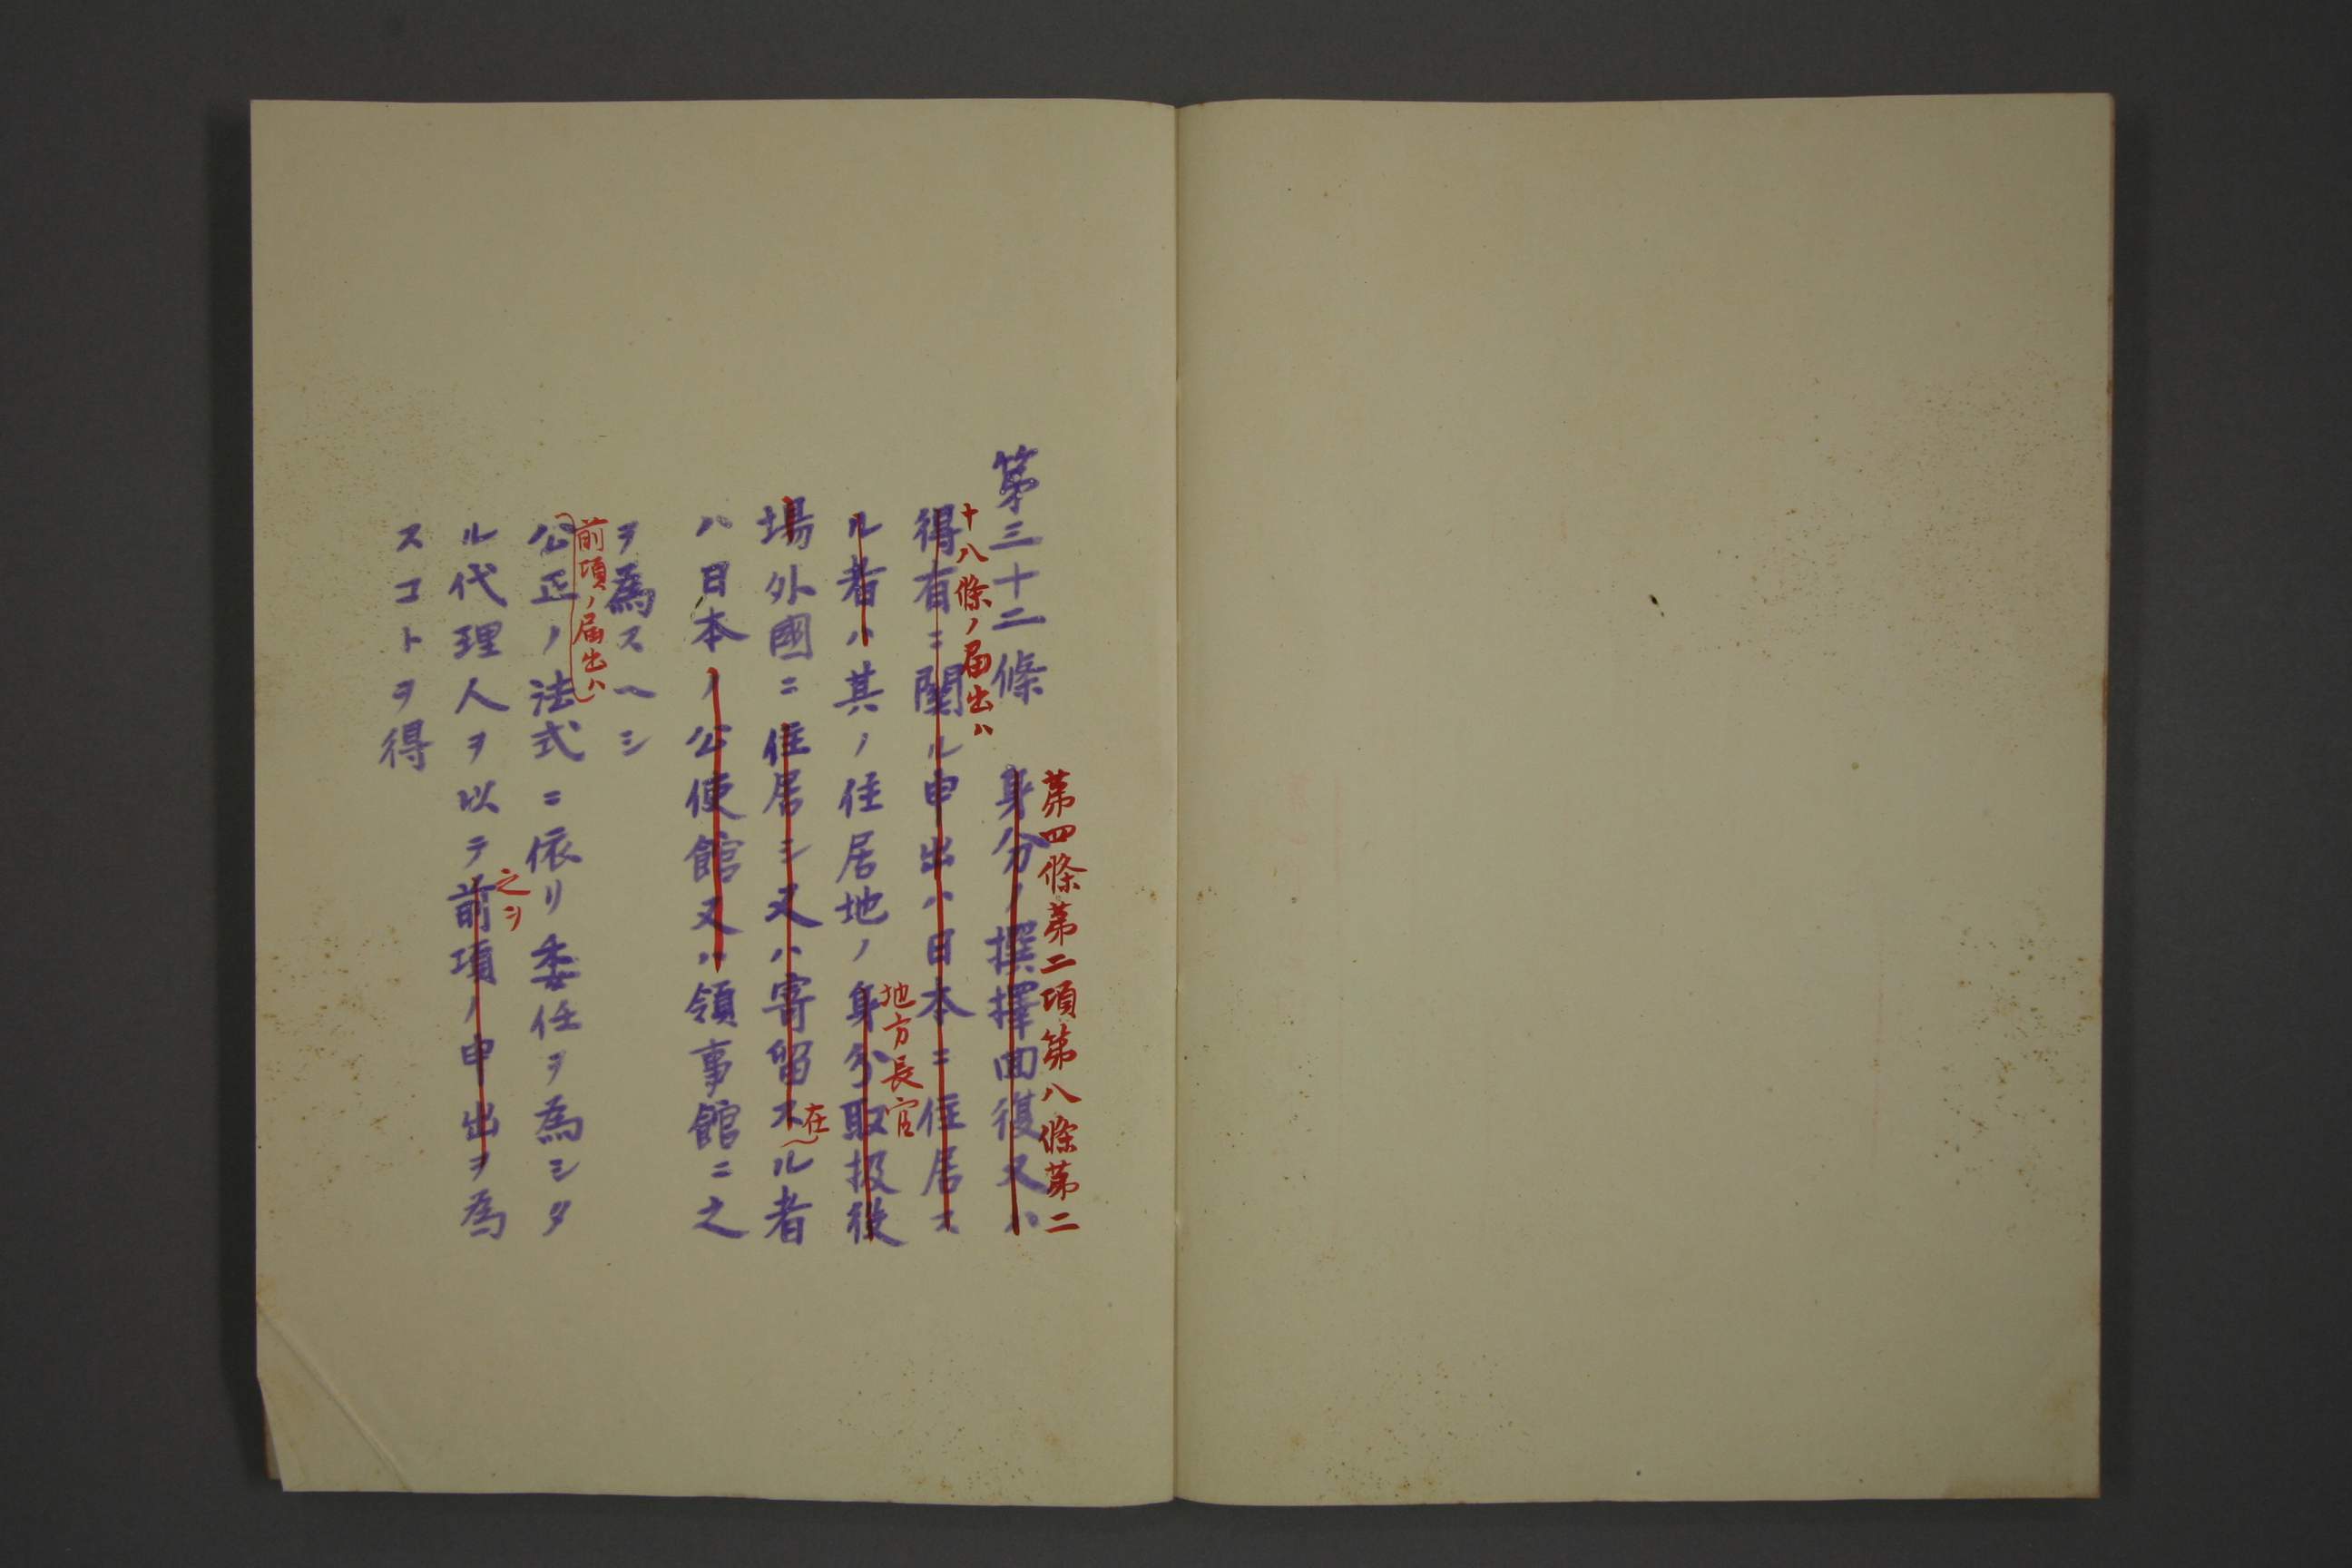 第四條第二項第八條第二
第三十二條　身分ノ撰擇回復又ハ
十八條ノ届出ハ
得有ニ關ル申出ハ日本ニ住居ス
地方長官
ル者ハ其ノ住居地ノ身分取扱役
在
場外國ニ住居シ又ハ寄留スル者
ハ日本ノ公使館又ハ領事館ニ之
ヲ為スヘシ
前項ノ届出ハ
公正ノ法式ニ依リ委任ヲ為シタ
之ヲ
ル代理人ヲ以テ前項ノ申出ヲ為
スコトヲ得